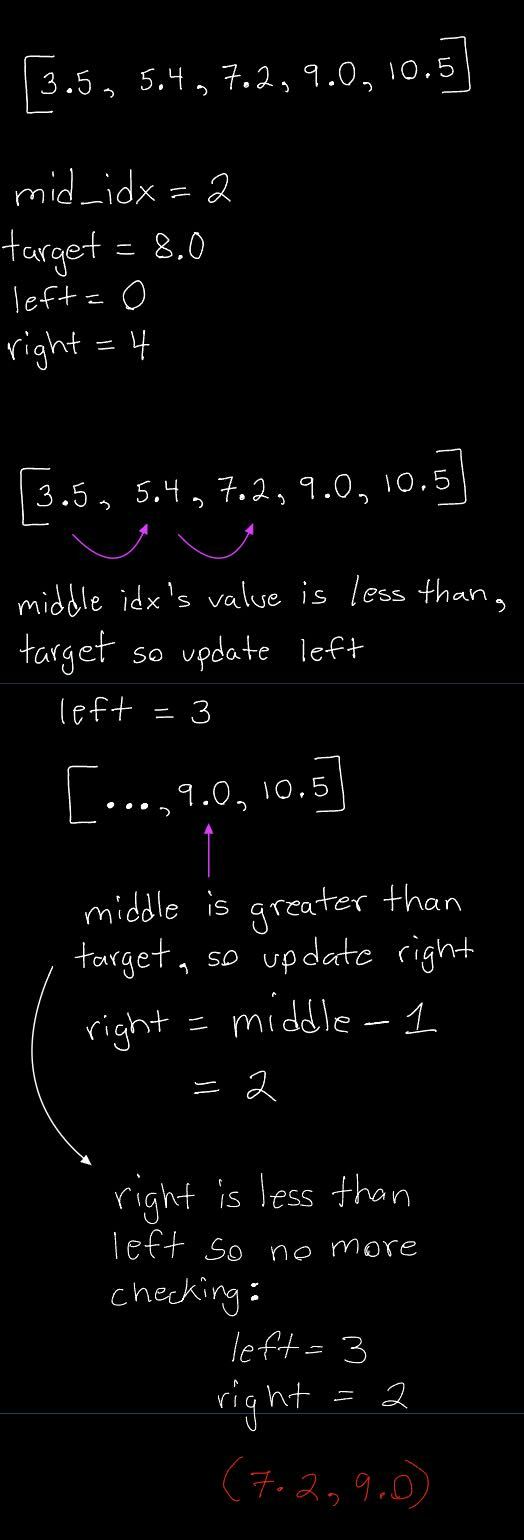 [3.5, 5.4, 7.2, 9.0, 10.5]
mid_idx = 2
target = 8.0
left = 0
right = 4
[3.5, 5.4, 7.2, 9.0, 10.5]
middle idx's value is less than,
target so update left
left = 3
[..., 9.0, 10.5]
middle is greater than
target, so update right
right = middle - 1
= 2
right is less than
left so no more
checking:
left = 3
right = 2
(7.2, 9.0)